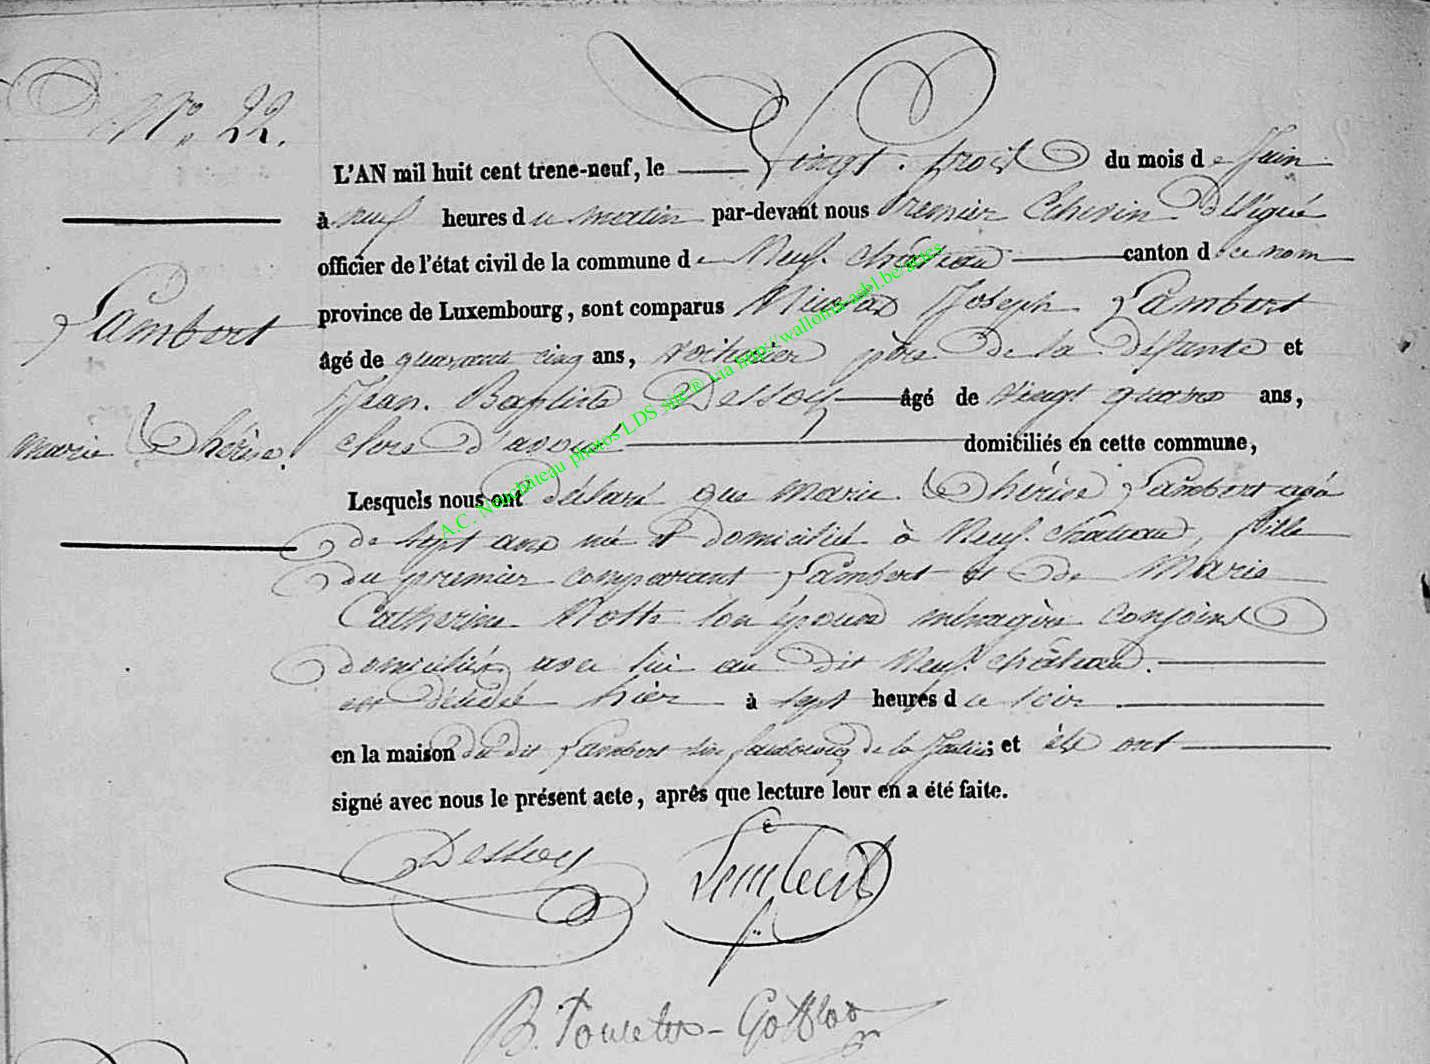 N° 22.
L'AN mil huit cent trene-neuf, le vingt-trois du mois de Juin
à neuf heures du matin par-devant nous Premier Echevin Délégué
officier de l'état civil de la commune de Neufchâteau canton de ce nom
Lambert
province de Luxembourg, sont comparus Nicolas Joseph Lambert
âgé de quarante cinq ans, voiturier père de la défunte et
Jean-Baptiste Dessoy âgé de vingt quatre ans,
Marie Thérèse.
clerc d'avoué domiciliés en cette commune,
Lesquels nous ont déclaré que Marie Thérèse Lambert agé
de sept ans né et domicilié à Neufchâteau, fille
du premier comparant Lambert et de Marie
Catherine Notte son épouse ménagère conjoint
domiciliés avec lui au dit Neufchâteau.
est décédé hier à sept heures de soir
en la maison du dit Lambert sise faubourg de la; et ils ont
signé avec nous le présent acte, après que lecture leur en a été faite.
Dessoy
Lambert
B. 
A.C. Neufchâteau photos LDS site © via http://wallonia-asbl.be/actes